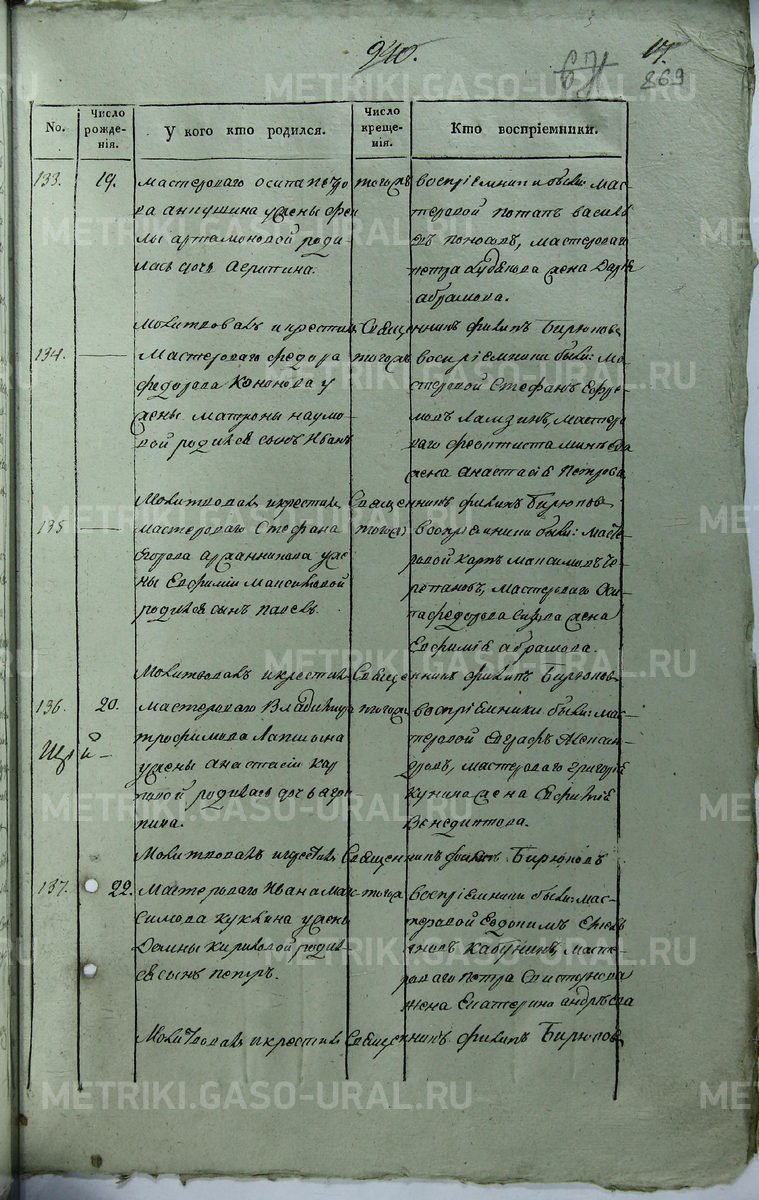 940.
17.
269
No.
Число рожде- нія.
У кого кто родился.
Число креще- нія.
Кто воспріемники.
133.
19.
мастероваго осипа петро
ва аннушина у жены
лы артамоновой роди
лась дочь агрипина.
тогожъ
воспріемники были: мас
теровой потапъ василь
евъ поносовъ, мастероваго
петра жена Дарья
абрамова.
Молитвовалъ и крестилъ Священникъ филипъ Бирюковъ
134.
—
Мастероваго федора
федорова Кононова у
жены матроны наумо
вой родился сынъ Иванъ
тогожъ
воспріемники были: ма
стеровой Стефанъ Ефре
мовъ Ламзинъ, мастеро
ваго феоктиста
жена анастасія Петрова
Молитвовалъ и крестилъ Священникъ филипъ Бирюковъ
135
—
мастероваго Стефана
Егорова у же
ны Евфимии Максимовой
родился сынъ павелъ.
тогожъ
воспріемники были: масте
ровой карпъ максимовъ Че
репановъ, мастероваго Оси
па федорова жена
Евфимія абрамова.
Молитвовалъ и крестилъ Священникъ филипъ Бирюковъ
136.
20.
мастероваго Владимира
трофимова Лапшина
у жены анастасіи кар
повой родилась дочь агри
пина.
тогожъ
воспріемники были: мас
теровой Евграфъ Алексан
дровъ, мастероваго григорія
кунина жена Евфимія
Венедиктова.
Молитвовалъ и крестилъ Священникъ филипъ Бирюковъ
137.
22.
мастероваго Ивана Мак
симова куклина у жены
Домны кириловой родил
ся сынъ петръ.
тогожъ
воспріемники были: мас
теровой Евдокимъ
кабунинъ, масте
роваго петра Свистунова
жена Екатерина андреева
Молитвовалъ и крестилъ Священникъ филипъ Бирюковъ
METRIKI.GASO-URAL.RU